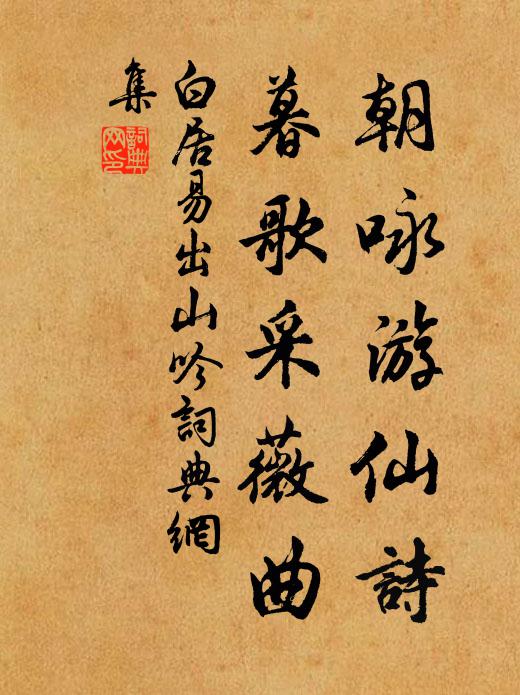 朝咏游仙詩
暮歌采薇曲
白居易出山吟詞典網
集
詞典網印